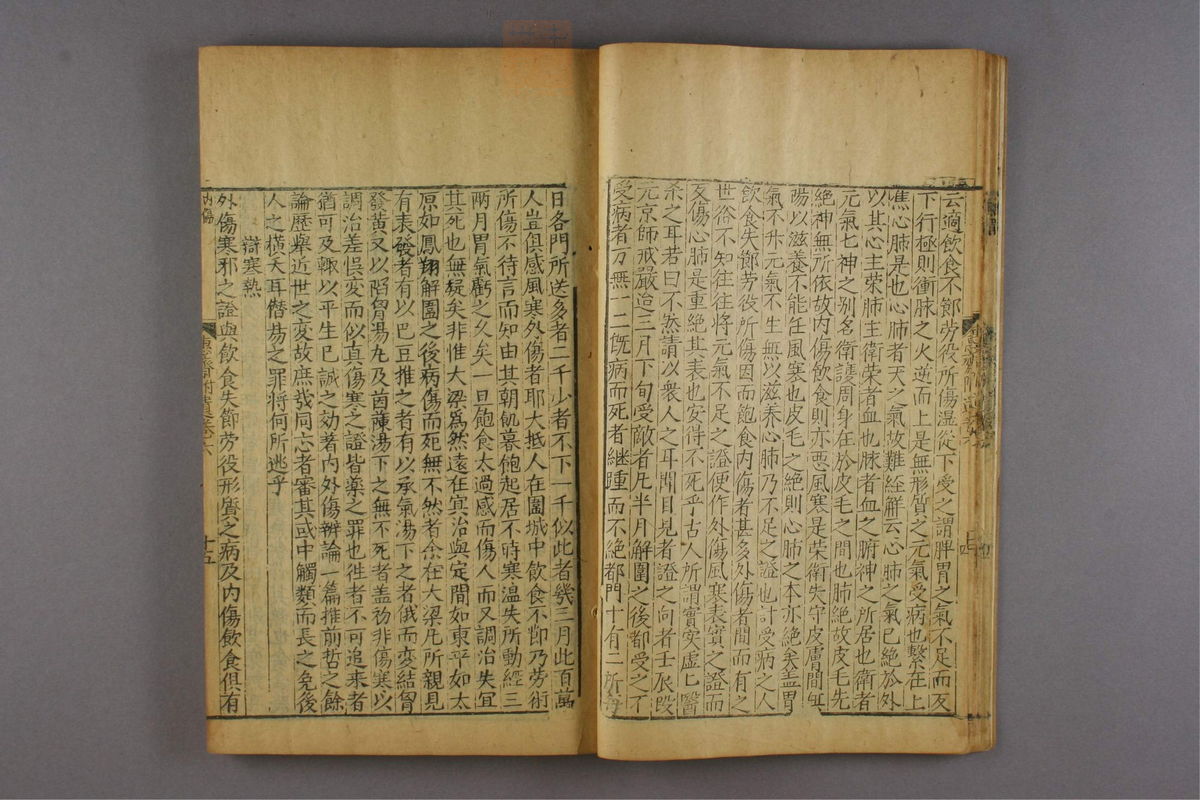 云適飲食不節勞役所傷濕從下受之謂脾胃之氣不足而反
下行極則衝脉之火逆而上是無形質之元氣受病也繫在上
焦心肺是也心肺者天之氣故難經解云心肺之氣已絶於外
以其心主荣肺主衛荣者血也脉者血之腑神之所居也衛者
元氣七神之别名衛護周身在於皮毛之間也肺絶故皮毛先
絶神無所依故内傷飲食則亦惡風寒是荣衛失守皮膚間無
陽以滋養不能任風寒也皮毛之絶則心肺之本亦絶矣盖胃
氣不升元氣不生無以滋养心肺乃不足之證也計受病之人
飲食失節劳役所傷因而飽食内傷者甚多外傷者間而有之
世俗不知往往將元氣不足之證便作外傷風寒表實之證而
反傷心肺是重絶其表也安得不死乎古人所謂實实虚七醫
杀之耳若曰不然請以衆人之耳聞目見者證之向者壬辰改
元京師戒嚴迨三月下旬受敵者凡半月解圍之後都受之不
受病者万無一二既病而死者継踵而不絶都門十有二所每
日各門所送多者二千少者不下一千似此者㡬三月此百萬
人豈俱感風寒外傷者耶大抵人在圍城中飲食不節乃劳術
所傷不待言而知由其朝飢暮飽起居不時寒温失所動經三
兩月胃氣虧之久矣一旦飽食太過感而傷人而又調治失宜
其死也無疑矣非惟大梁爲然遠在㝎治與定間如東平如太
原如鳳翔解圍之後病傷而死無不然者余在大梁凡所親見
有表發者有以巴豆推之者有以承氣湯下之者俄而变結胷
發黄又以陷胷湯丸及茵蔯湯下之無不死者盖初非傷寒以
調治差悮变而似真傷寒之證皆藥之罪也徃者不可追来者
猶可及輙以平生已試之効著内外傷辨論一篇推前哲之餘
論歷舉近世之变故庶㢤同志者審其或中觸類而長之免後
人之横夭耳僭昜之罪將何所逃乎
辯寒熱
外傷寒邪之證與飲食失節劳役形質之病及内傷飲食俱有
内傷
十五